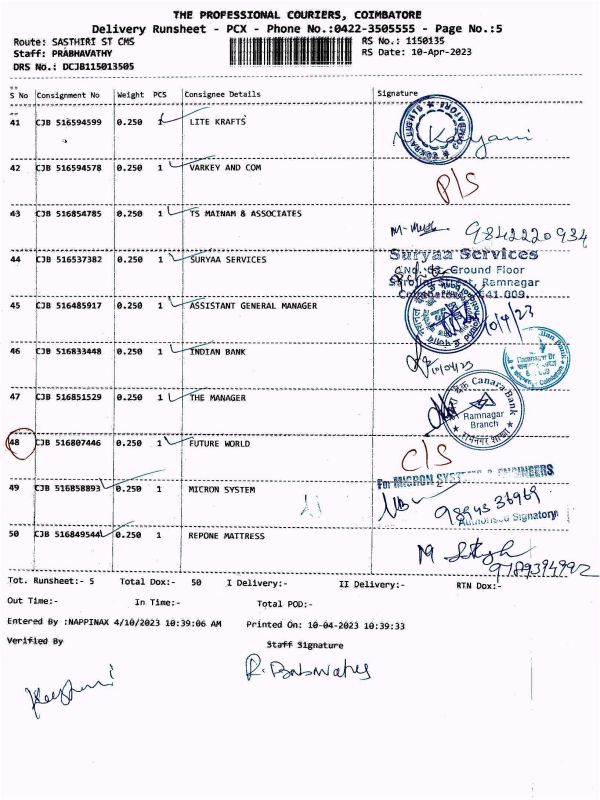 THE PROFESSIONAL COURIERS, COIMBATORE
Delivery Runsheet - PCX - Phone No.:0422-3505555 - Page No.:5
Route: SASTHIRI ST CMS
RS No.: 1150135
Staff: PRABHAVATHY
RS Date: 10-Apr-2023
DRS No.: DCJB115013505
S No Consignment No Weight PCS Consignee Details Signature
41 CJB 516594599 0.250 1 LITE KRAFTS
42 CJB 516594578 0.250 1 VARKEY AND COM P/S
43 CJB 516854785 0.250 1 TS MAINAM & ASSOCIATES 9842220934
44 CJB 516537382 0.250 1 SURYAA SERVICES
Suryaa Services
Ground Floor
Ramnagar
641 009.
45 CJB 516485917 0.250 1 ASSISTANT GENERAL MANAGER 10/4/23
46 CJB 516833448 0.250 1 INDIAN BANK 10/04/23
47 CJB 516851529 0.250 1 THE MANAGER
Canara Bank
Ramnagar
Branch
48 CJB 516807446 0.250 1 FUTURE WORLD C/S
49 CJB 516858893 0.250 1 MICRON SYSTEM
For MICRON SYSTEMS & ENGINEERS
9894536969
Authorised Signatory
50 CJB 516849544 0.250 1 REPONE MATTRESS
9789394992
Tot. Runsheet:- 5 Total Dox:- 50 I Delivery:- II Delivery:- RTN Dox:-
Out Time:- In Time:- Total POD:-
Entered By :NAPPINAX 4/10/2023 10:39:06 AM Printed On: 10-04-2023 10:39:33
Verified By Staff Signature